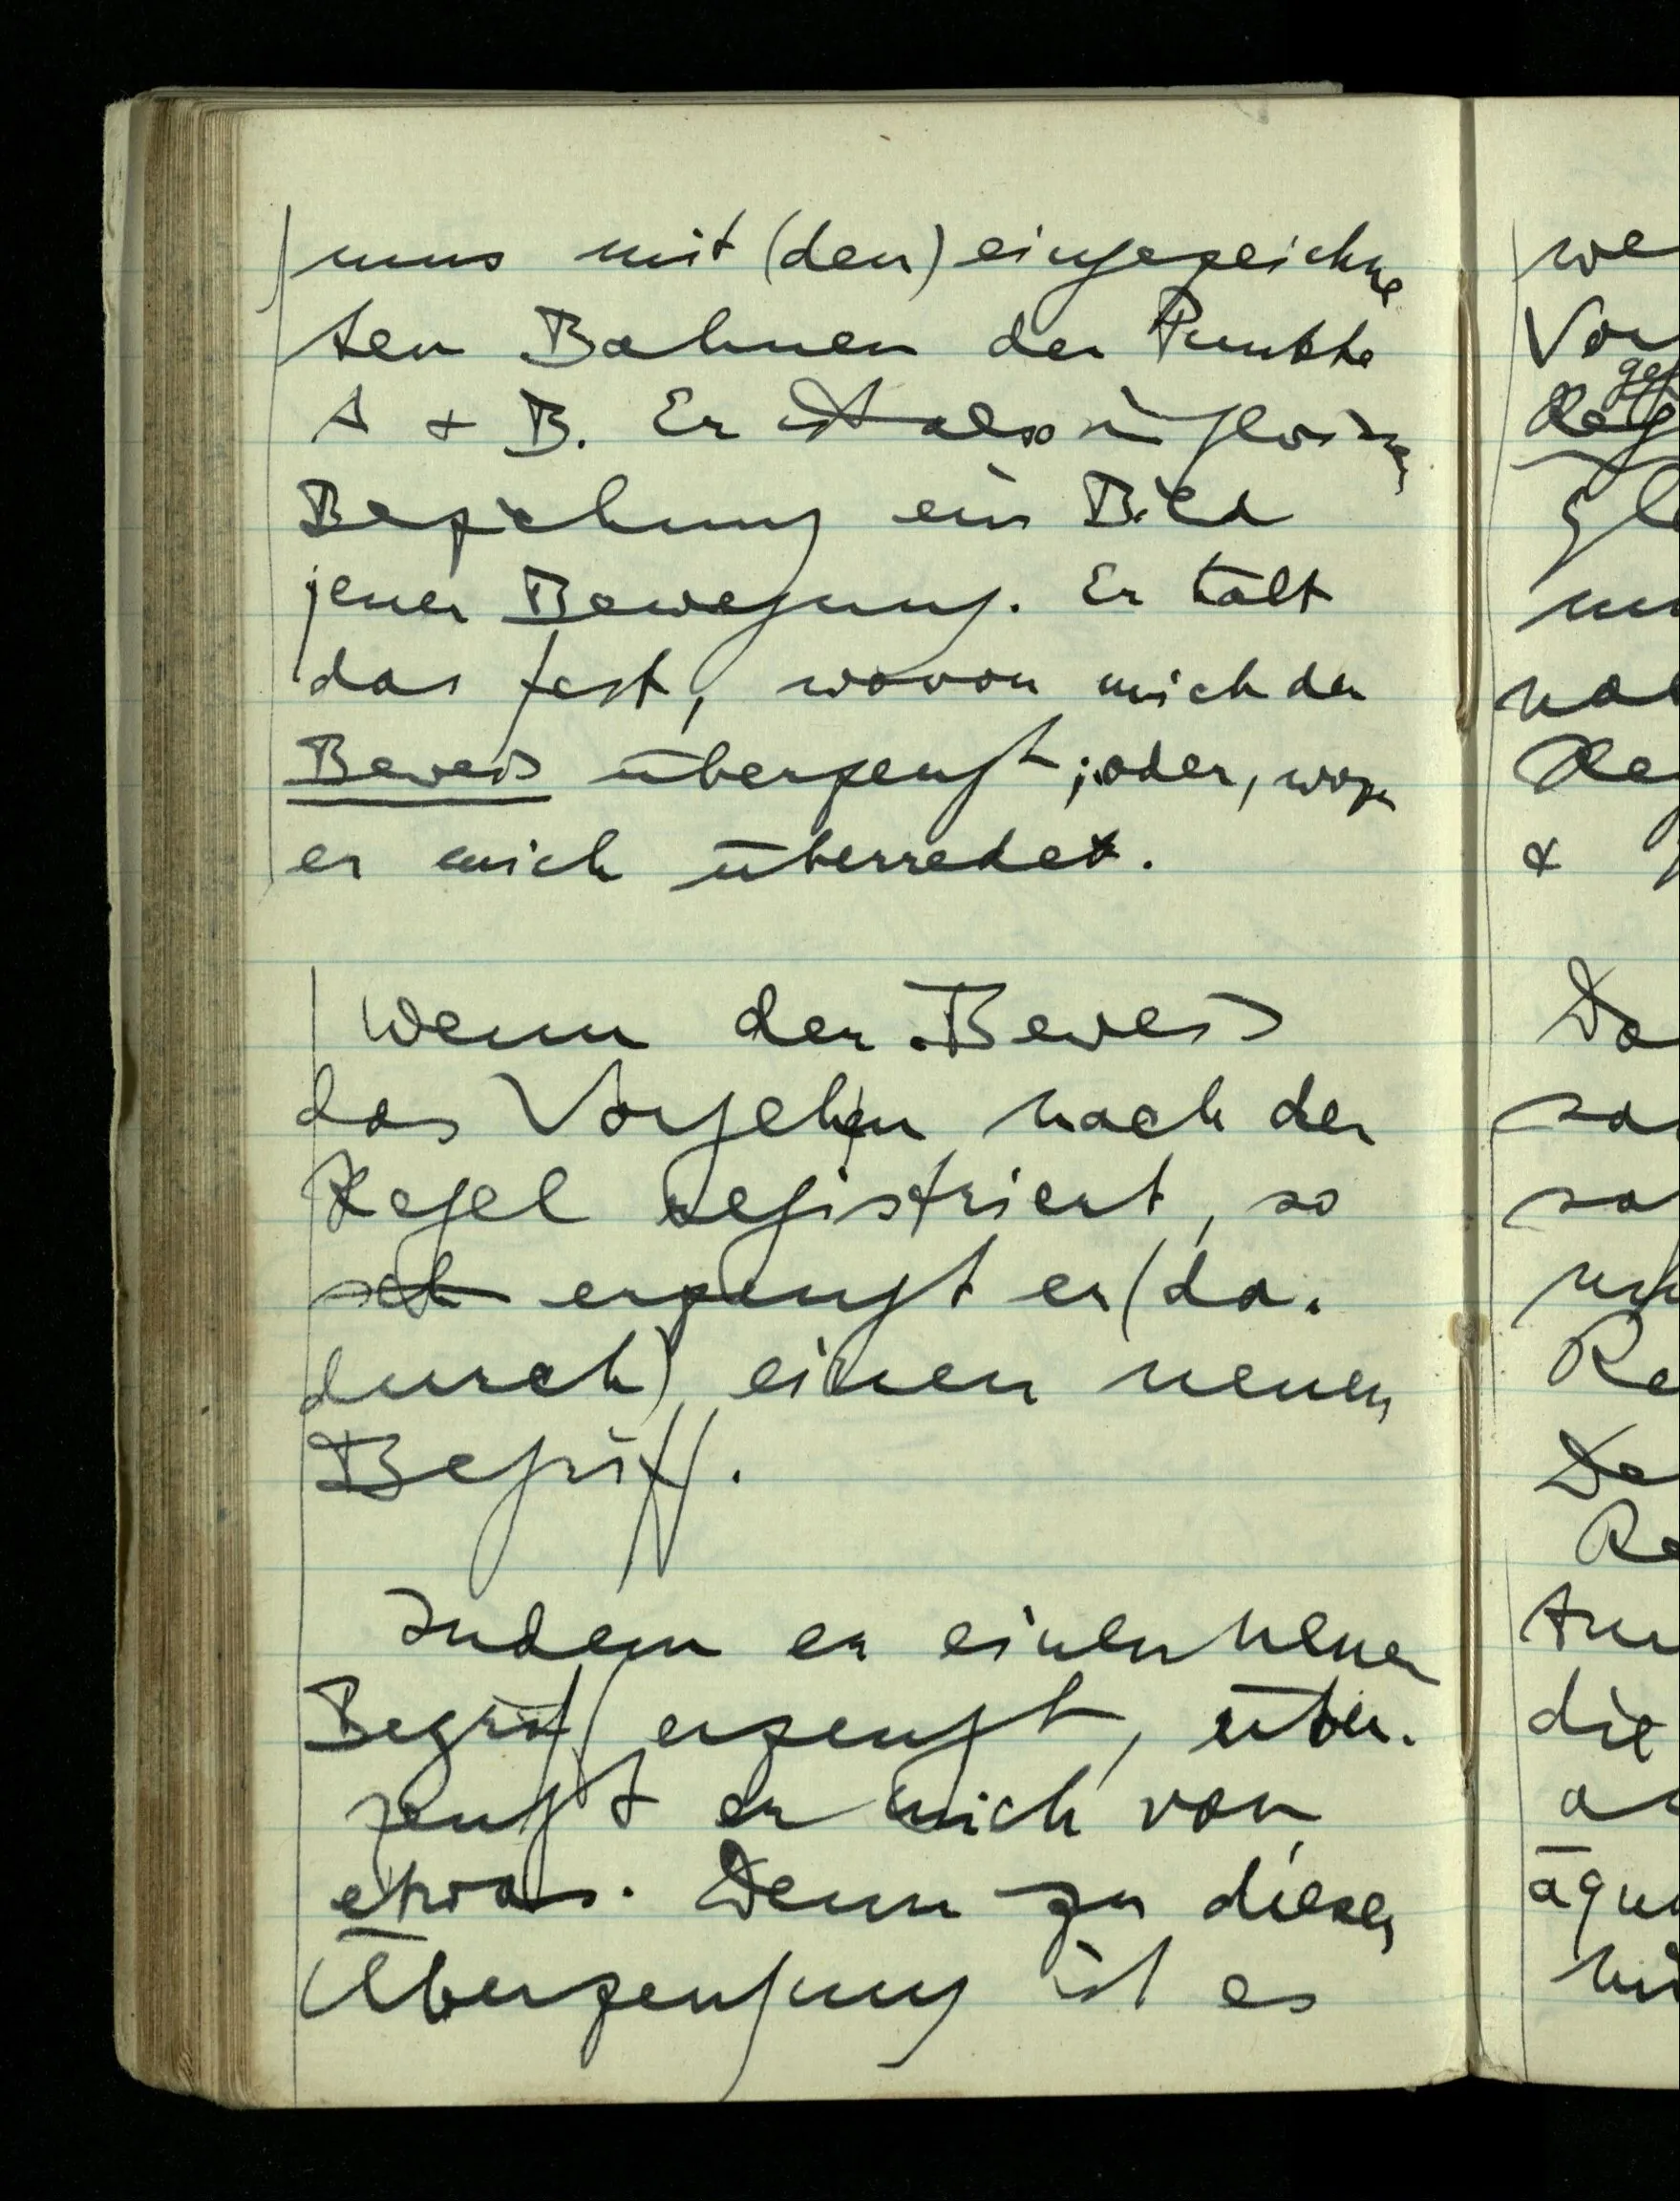 mus mit (den) eingezeichne
ten Bahnen der Punkte
A + B. Er ist also in gewisser
Beziehung ein Bild
jener Bewegung. Er hält
das fest, wovon mich der
Beweis überzeugt; oder, wozu
er mich überredet.
Wenn der Beweis
das Vorgehen nach der
Regel registriert, so
erzeugt er (da-
durch) einen neuen
Begriff.
Indem er einen neuen
Begriff erzeugt, über-
zeugt er mich von
etwas. Denn zu dieser
Überzeugung ist es
we
Vor
Reg
gl
Re
&
Da
so
Re
De
Re
die